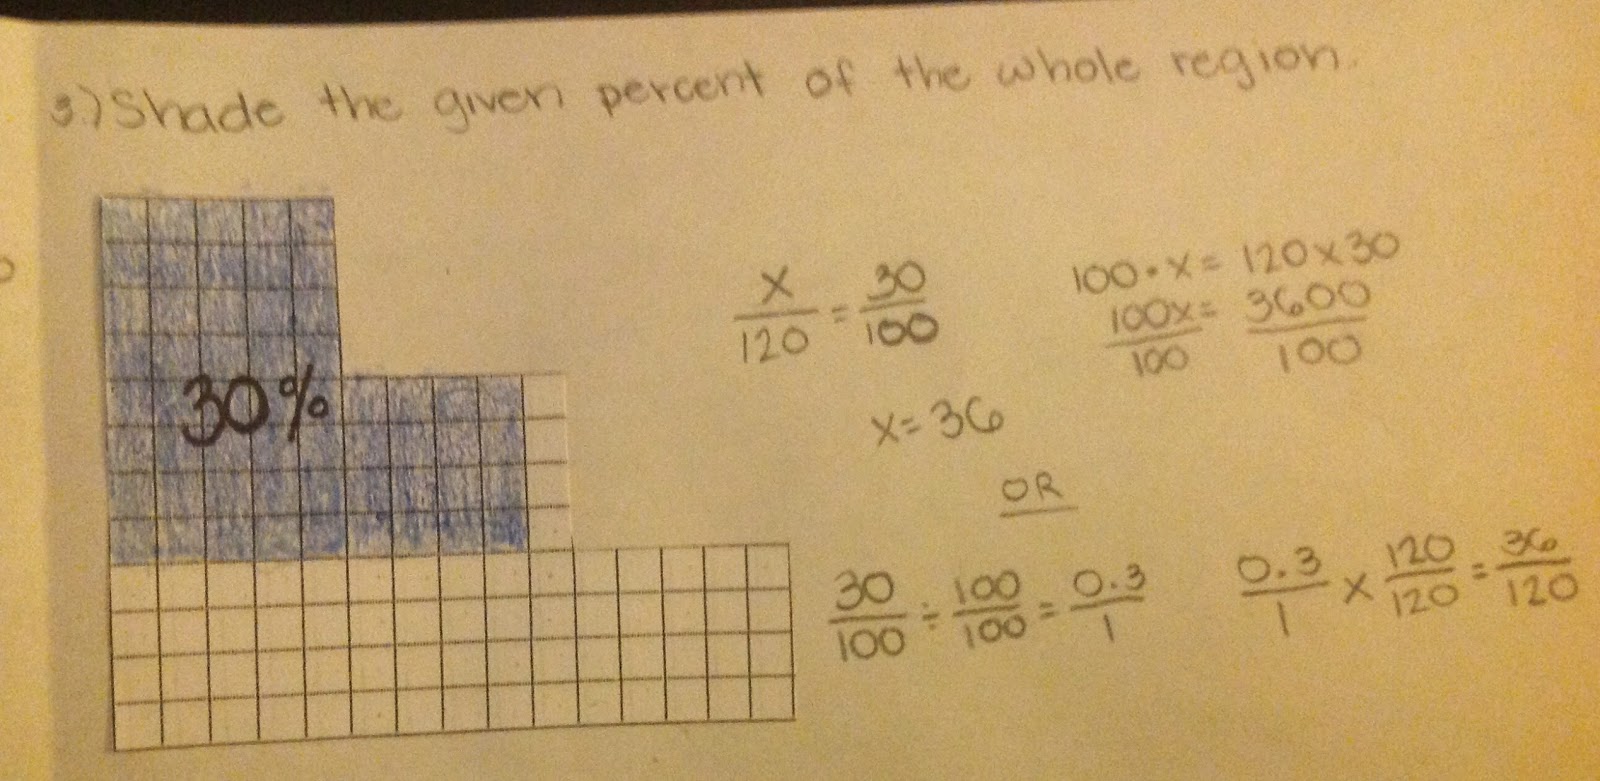 3.) Shade the given percent of the whole region.
30%
x/120 = 30/100
100·x = 120x30
100x/100 = 3600/100
x=36
OR
30/100 ÷ 100/100 = 0.3/1
0.3/1 x 120/120 = 36/120